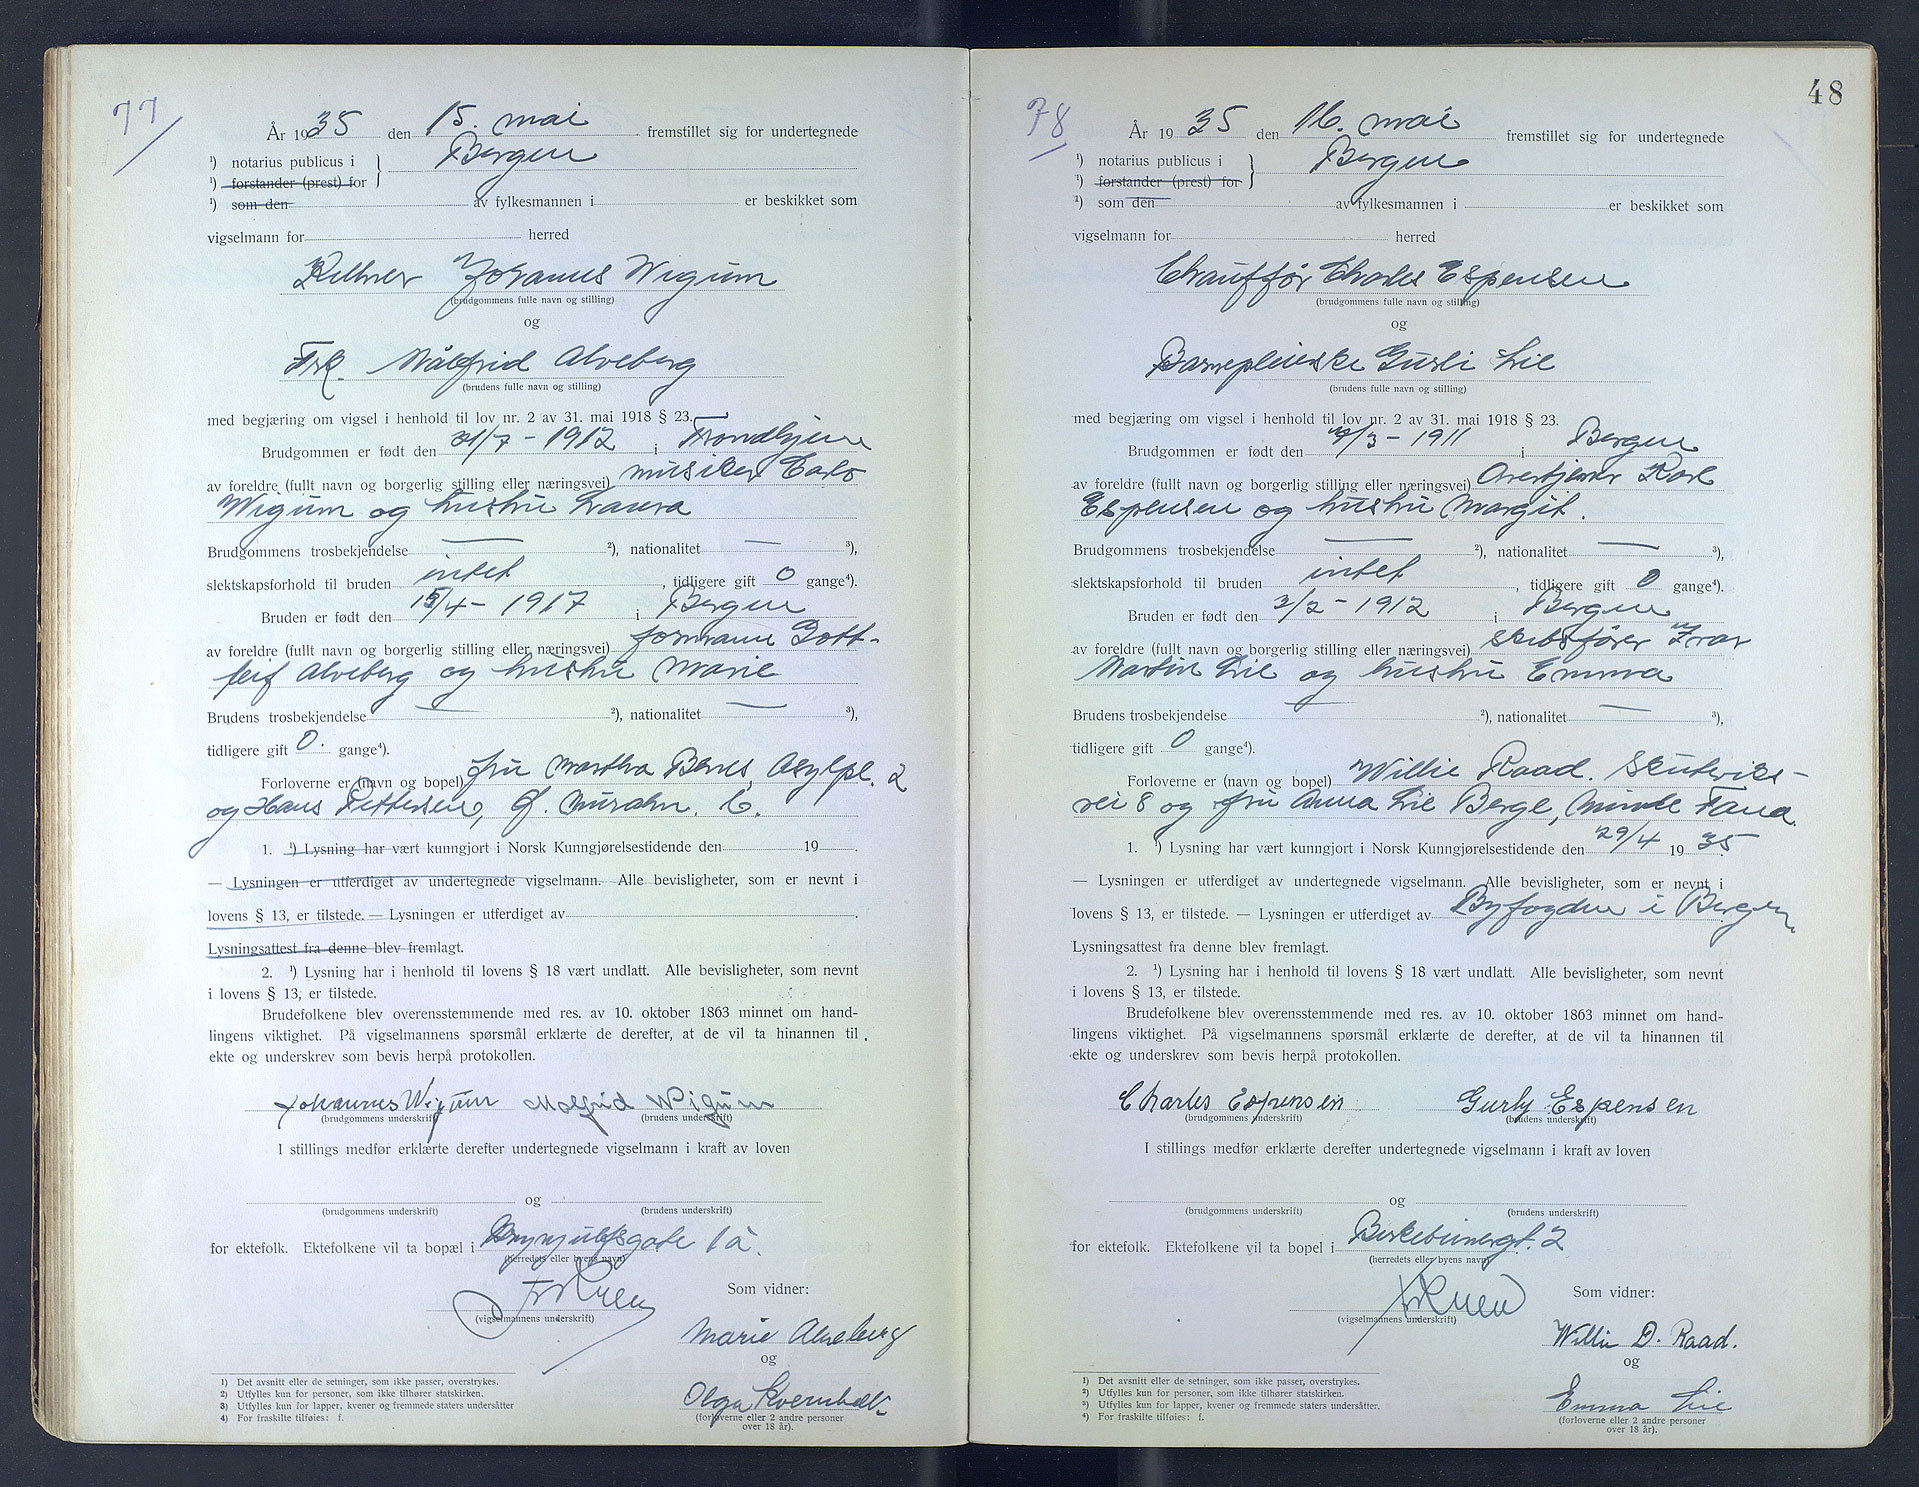 77
År 1935 den 15. mai fremstillet sig for undertegnede
¹) notarius publicus i } Bergen
¹) forstander (prest) for
¹) som den av fylkesmannen i er beskikket som
vigselmann for herred
Kellner Johannes Wigum
(brudgommens fulle navn og stilling)
og
Frk. Målfrid Alveberg
(brudens fulle navn og stilling)
med begjæring om vigsel i henhold til lov nr. 2 av 31. mai 1918 § 23.
Brudgommen er født den 21/7 - 1912 i Trondhjem
av foreldre (fullt navn og borgerlig stilling eller næringsvei) musiker Carlo
Wigum og hustru Laura
Brudgommens trosbekjendelse — ²), nationalitet — ³),
slektskapsforhold til bruden intet, tidligere gift 0 gange⁴).
Bruden er født den 15/4 - 1917 i Bergen
av foreldre (fullt navn og borgerlig stilling eller næringsvei) formann Gott-
leif Alveberg og hustru Marie
Brudens trosbekjendelse — ²), nationalitet — ³),
tidligere gift 0. gange⁴).
Forloverne er (navn og bopel) fru Martha Asylpl. 2
og Hans Pettersen,
1. ¹) Lysning har vært kunngjort i Norsk Kunngjørelsestidende den 19 .
— Lysningen er utferdiget av undertegnede vigselmann. Alle bevisligheter, som er nevnt i
lovens § 13, er tilstede. — Lysningen er utferdiget av .
Lysningsattest fra denne blev fremlagt.
2. ¹) Lysning har i henhold til lovens § 18 vært undlatt. Alle bevisligheter, som nevnt
i lovens § 13, er tilstede.
Brudefolkene blev overensstemmende med res. av 10. oktober 1863 minnet om hand-
lingens viktighet. På vigselmannens spørsmål erklærte de derefter, at de vil ta hinannen til
ekte og underskrev som bevis herpå protokollen.
Johannes Wigum Molfrid Wigum
(brudgommens underskrift) (brudens underskrift)
I stillings medfør erklærte derefter undertegnede vigselmann i kraft av loven
og
(brudgommens underskrift) (brudens underskrift)
for ektefolk. Ektefolkene vil ta bopæl i Brynjulfsgate 1a.
(herredets eller byens navn)
(vigselmannens underskrift)
Som vidner:
Marie Alveberg
og
Olga
(forloverne eller 2 andre personer
over 18 år).
1) Det avsnitt eller de setninger, som ikke passer, overstrykes.
2) Utfylles kun for personer, som ikke tilhører statskirken.
3) Utfylles kun for lapper, kvener og fremmede staters undersåtter
4) For fraskilte tilføies: f.
48
78
År 1935 den 16. mai fremstillet sig for undertegnede
¹) notarius publicus i } Bergen
¹) forstander (prest) for
¹) som den av fylkesmannen i er beskikket som
vigselmann for herred
Chauffør Charles Espensen
(brudgommens fulle navn og stilling)
og
Barnepleierske Gurli Lie
(brudens fulle navn og stilling)
med begjæring om vigsel i henhold til lov nr. 2 av 31. mai 1918 § 23.
Brudgommen er født den /3 - 1911 i Bergen
av foreldre (fullt navn og borgerlig stilling eller næringsvei) Karl
Espensen og hustru Margit.
Brudgommens trosbekjendelse — ²), nationalitet — ³),
slektskapsforhold til bruden intet, tidligere gift 0 gange⁴).
Bruden er født den 3/2 - 1912 i Bergen
av foreldre (fullt navn og borgerlig stilling eller næringsvei) skibsfører Ivar
Martin Lie og hustru Emma
Brudens trosbekjendelse — ²), nationalitet — ³),
tidligere gift 0 gange⁴).
Forloverne er (navn og bopel) Willie Raad. Skuteviks-
vei 8 og fru Anna Lie Berge, Minde Fana.
1. ¹) Lysning har vært kunngjort i Norsk Kunngjørelsestidende den 29/4 1935.
— Lysningen er utferdiget av undertegnede vigselmann. Alle bevisligheter, som er nevnt i
lovens § 13, er tilstede. — Lysningen er utferdiget av Byfogden i Bergen.
Lysningsattest fra denne blev fremlagt.
2. ¹) Lysning har i henhold til lovens § 18 vært undlatt. Alle bevisligheter, som nevnt
i lovens § 13, er tilstede.
Brudefolkene blev overensstemmende med res. av 10. oktober 1863 minnet om hand-
lingens viktighet. På vigselmannens spørsmål erklærte de derefter, at de vil ta hinannen til
ekte og underskrev som bevis herpå protokollen.
Charles Espensen Gurly Espensen
(brudgommens underskrift) (brudens underskrift)
I stillings medfør erklærte derefter undertegnede vigselmann i kraft av loven
og
(brudgommens underskrift) (brudens underskrift)
for ektefolk. Ektefolkene vil ta bopel i Birkebeinergt. 2
(herredets eller byens navn)
(vigselmannens underskrift)
Som vidner:
Willie D. Raad.
og
Emma Lie
(forloverne eller 2 andre personer
over 18 år).
¹) Det avsnitt eller de setninger, som ikke passer, overstrykes.
²) Utfylles kun for personer, som ikke tilhører statskirken.
³) Utfylles kun for lapper, kvener og fremmede staters undersåtter.
⁴) For fraskilte tilføies: f.